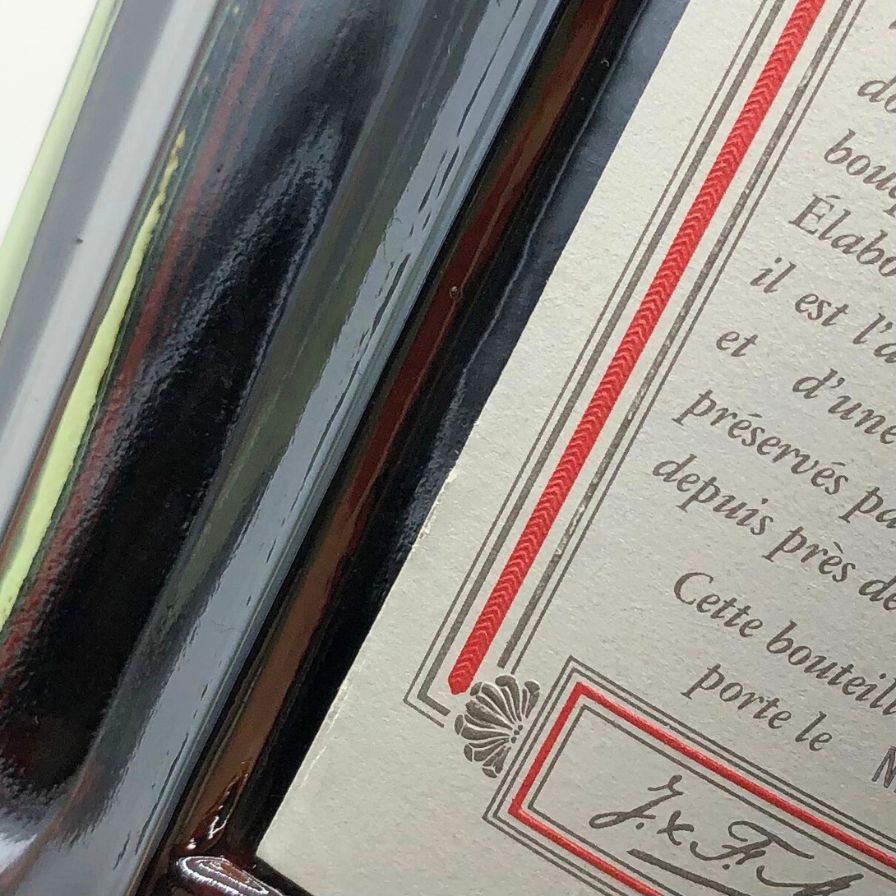 Élabo
il est l'a
et d'une
préservés pa
depuis près de
Cette bouteil
porte le N
J. & F.